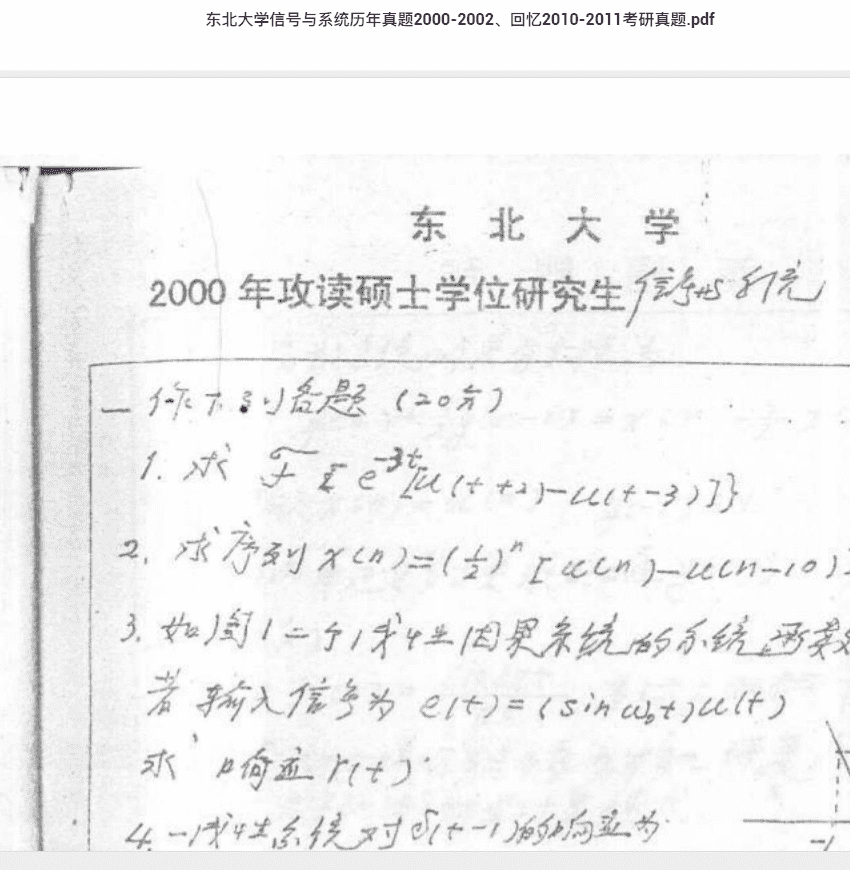 东北大学信号与系统历年真题2000-2002、回忆2010-2011考研真题.pdf
东 北 大 学
2000 年攻读硕士学位研究生信号与系统
一 作下列各题 (20分)
1. 求 F [ e^{-3t}[u(t+2)-u(t-3)]}
2. 求序列 x(n)=(1/2)^n [u(n)-u(n-10)]
3. 如图1一个线性因果系统的系统函数
若输入信号为 e(t)=(sin ω₀t)u(t)
求 响应 r(t)
4. 一线性系统对 δ(t-1)的响应为
-1